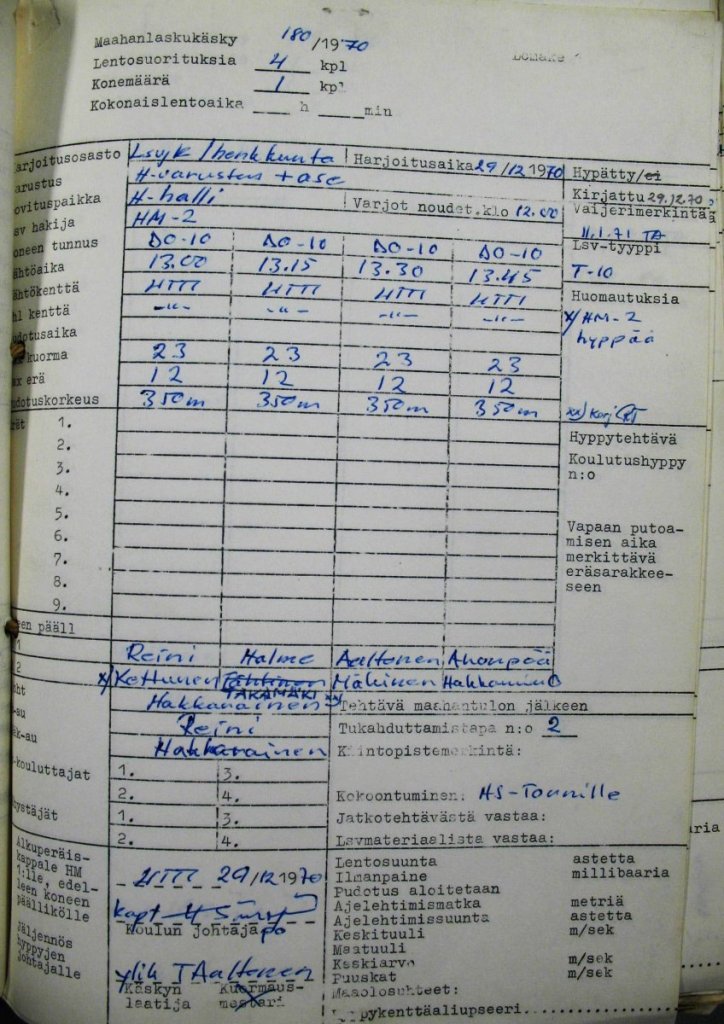 Maahanlaskukäsky 180/1970
Lentosuorituksia 4 kpl
Konemäärä 1 kpl
Kokonaislentoaika ___ h ____min
Lomake
arjoitusosasto Lsvjk/henkkunta Harjoitusaika 29/12 1970 Hypätty/ei
arustus H-varustus + ase Kirjattu 29.12.70
ovituspaikka H-halli Varjot noudet.klo 12.00 Vaijerimerkintä
sv hakija HM-2 11.1.71 TA
oneen tunnus DO-10 DO-10 DO-10 DO-10 Lsv-tyyppi
ähtöaika 13.00 13.15 13.30 13.45 T-10
ähtökenttä HTTI HTTI HTTI HTTI Huomautuksia
hl kenttä -"- -"- -"- -"- x/ HM-2
udotusaika hyppää
kuorma 23 23 23 23
ax erä 12 12 12 12
udotuskorkeus 350m 350m 350m 350m xx/ korj
rät 1. Hyppytehtävä
2. Koulutushyppy
3. n:o
4.
5. Vapaan putoa-
6. misen aika
7. merkittävä
8. eräsarakkee-
9. seen
een pääll
1 Reini Halme Aaltonen Ahonpää
2 x/ Kettunen Tähtinen Mäkinen Hakkarainen
TAKAMÄKI xx/
oht Hakkarainen Tehtävä maahantulon jälkeen
-au Reini Tukahduttamistapa n:o 2
äk-au Hakkarainen Kiintopistemerkintä:
-kouluttajat 1. 3.
2. 4. Kokoontuminen: HS-Tornille
ystäjät 1. 3. Jatkotehtävästä vastaa:
2. 4. Lsvmateriaalista vastaa:
Alkuperäis-
kappale HM
1:lle, edel-
leen koneen
päällikölle
Jäljennös
hyppyjen
johtajalle
HTTI 29/12 1970
kapt
Koulun johtaja po
ylik TAaltonen
Käskyn Kuormaus-
laatija mestari
Lentosuunta astetta
Ilmanpaine millibaaria
Pudotus aloitetaan
Ajelehtimismatka metriä
Ajelehtimissuunta astetta
Keskituuli m/sek
Maatuuli
Keskiarvo m/sek
Puuskat m/sek
Maaolosuhteet:
ypykenttäaliupseeri...................
aria